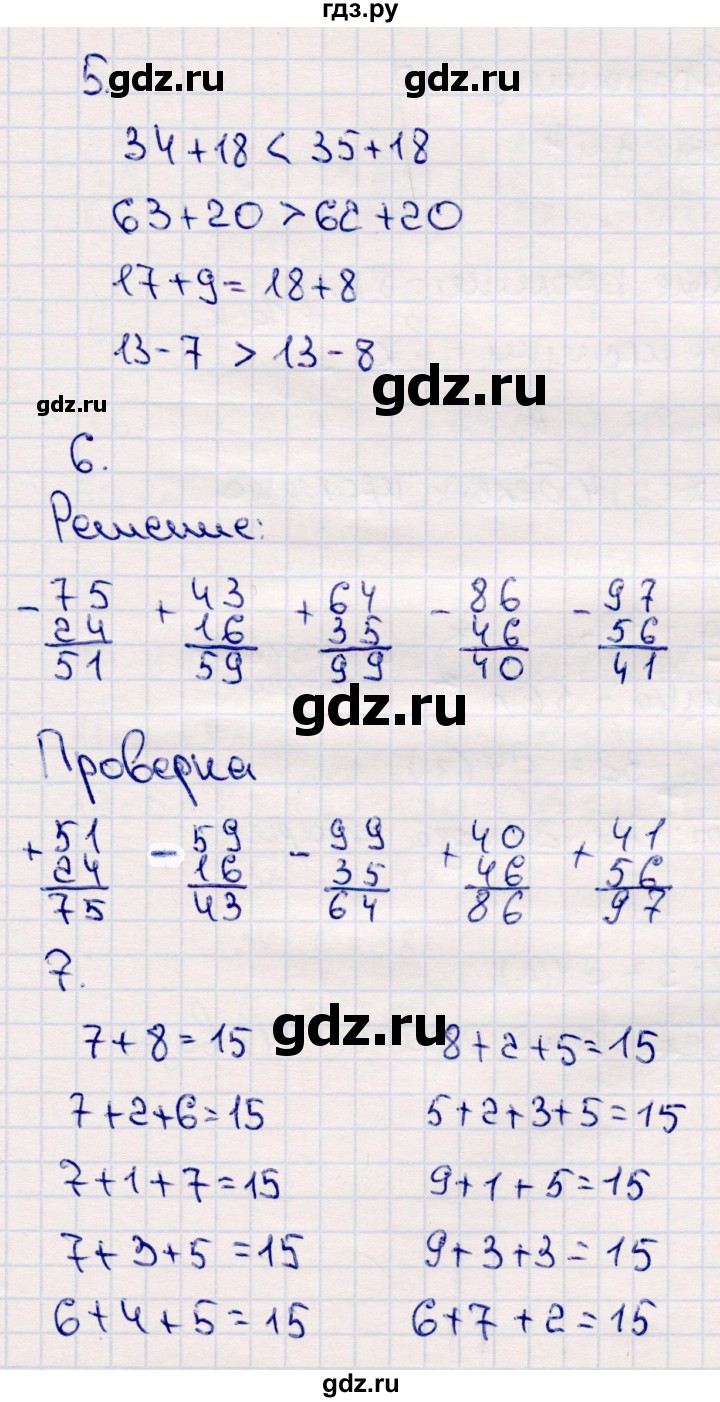 гдз.ру
5.
gdz.ru gdz.ru
34+18 < 35+18
63+20 > 62+20
17+9 = 18+8
13-7 > 13-8
gdz.ru
gdz.ru
6.
Решение:
- 75 + 43 + 64 - 86 - 97
24 16 35 46 56
51 59 99 40 41
gdz.ru
Проверка
+ 51 - 59 - 99 + 40 + 41
24 16 35 46 56
75 43 64 86 97
7.
gdz.ru
7+8=15 8+2+5=15
7+2+6=15 5+2+3+5=15
7+1+7=15 9+1+5=15
7+3+5=15 9+3+3=15
6+4+5=15 6+7+2=15
gdz.ru